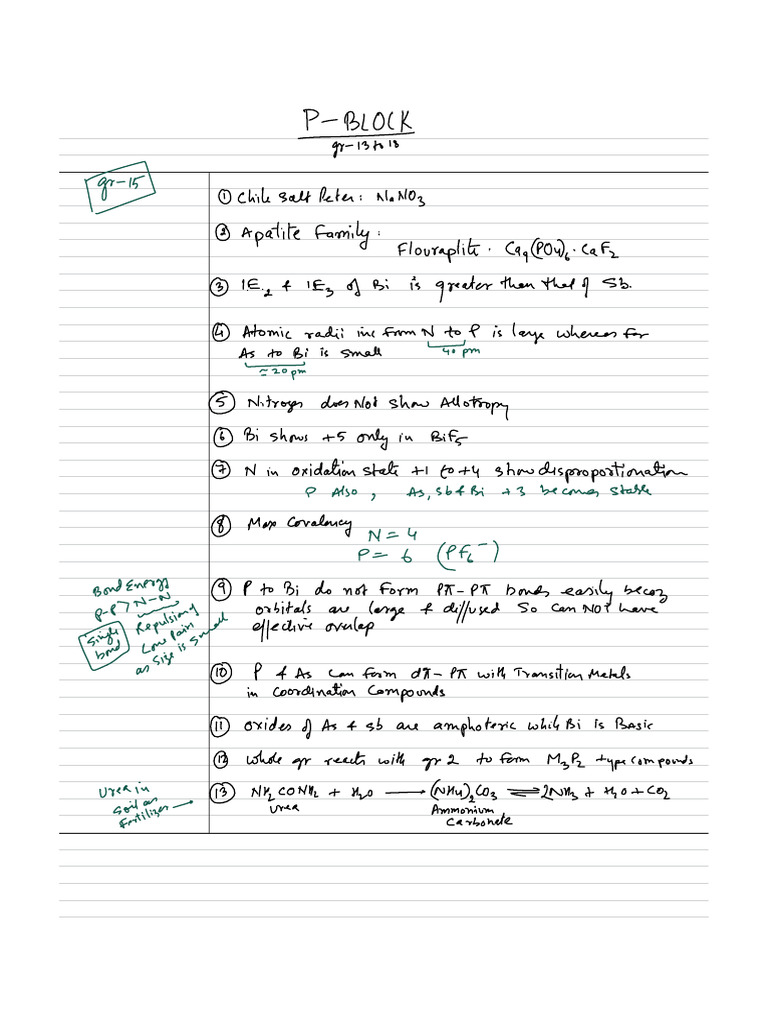 P-BLOCK
gr-13 to 18
gr-15
① Chile Salt Peter: NaNO₃
② Apatite Family:
Flouraplite · Ca₉(PO₄)₆ · CaF₂
③ IE₂ & IE₃ of Bi is greater than that of Sb.
④ Atomic radii inc from N to P is large whereas for
40 pm
As to Bi is small
≈20pm
⑤ Nitrogen does Not show Allotropy
⑥ Bi shows +5 only in BiF₅
⑦ N in oxidation state +1 to +4 show disproportionation
P Also, As, Sb & Bi +3 becomes stable
⑧ Max Covalency
N = 4
P = 6 (PF₆⁻)
Bond Energy
P-P > N-N
Single bond
Repulsion of
Lone Pair
as size is small
⑨ P to Bi do not form Pπ-Pπ bonds easily becoz
orbitals are large & diffused So can NOT have
effective overlap
⑩ P & As can form dπ-Pπ with Transition Metals
in coordination Compounds
⑪ oxides of As & Sb are amphoteric while Bi is Basic
⑫ whole gr reacts with gr 2 to form M₃P₂ type compounds
Urea in
soil as
fertilizer →
⑬ NH₂CONH₂ + H₂O ⟶ (NH₄)₂CO₃ ⇌ 2NH₃ + H₂O + CO₂
Urea Ammonium
Carbonate